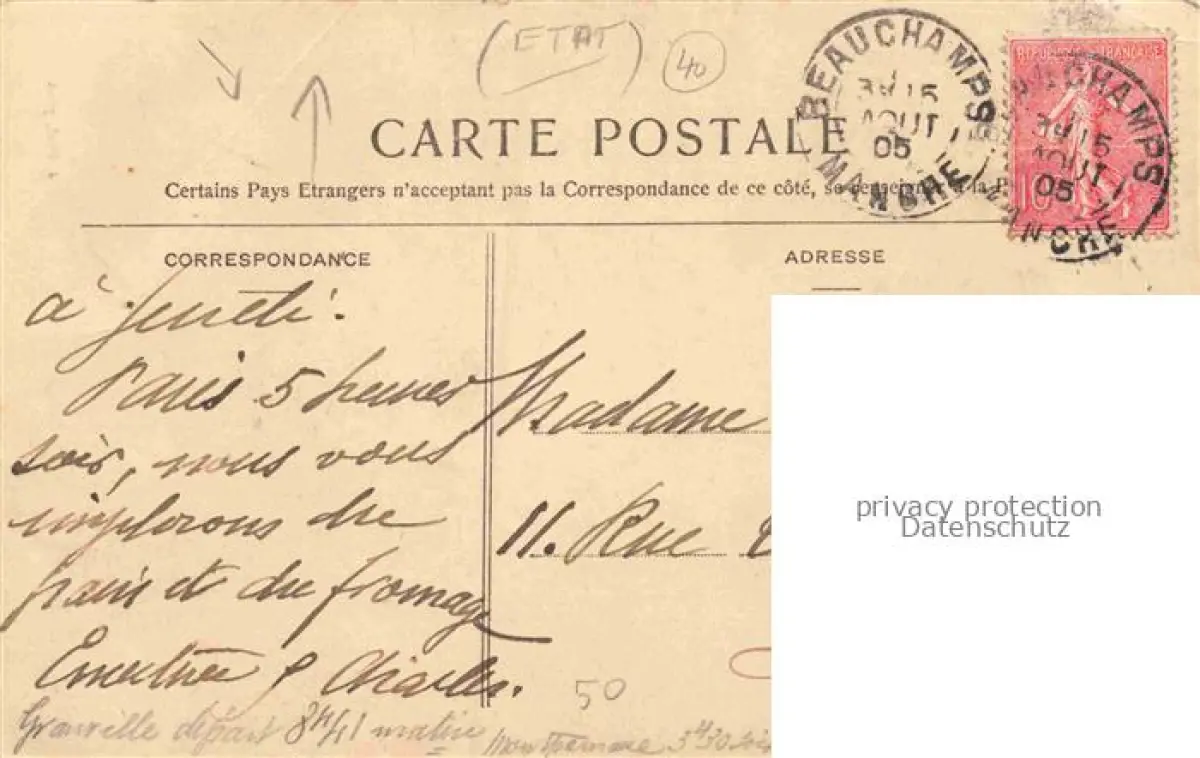 (ETAT)
40
BEAUCHAMPS
15
AOUT
05
MANCHE
REPUBLIQUE FRANÇAISE
10
BEAUCHAMPS
15
AOUT
05
MANCHE
CARTE POSTALE
Certains Pays Etrangers n'acceptant pas la Correspondance de ce côté, se renseigner à la P
CORRESPONDANCE
ADRESSE
à
Paris 5 heures
soir, nous vous
implorons du
pain et du fromage
Charles.
Madame
11. Rue
50
Granville départ 8h41 matin
Montparnasse 3h30 soir
privacy protection
Datenschutz